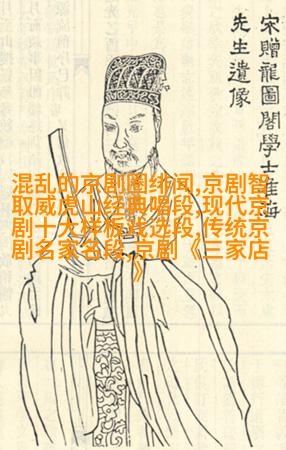 宋贈龍圖閣學士淮海
先生遺像
混乱的京剧圈绯闻,京剧智
取威虎山经典唱段,现代京
剧十大样板戏选段,传统京
剧名家名段,京剧《三家店
》